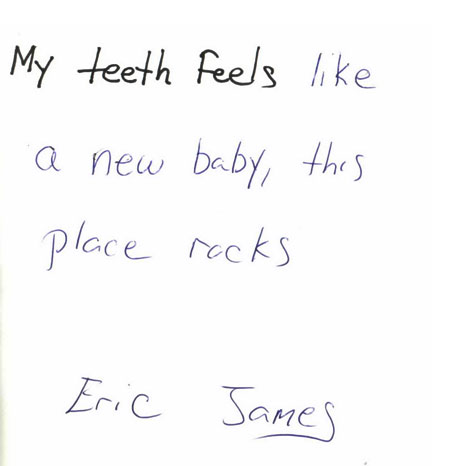 My teeth feels like
a new baby, this
place rocks
Eric James